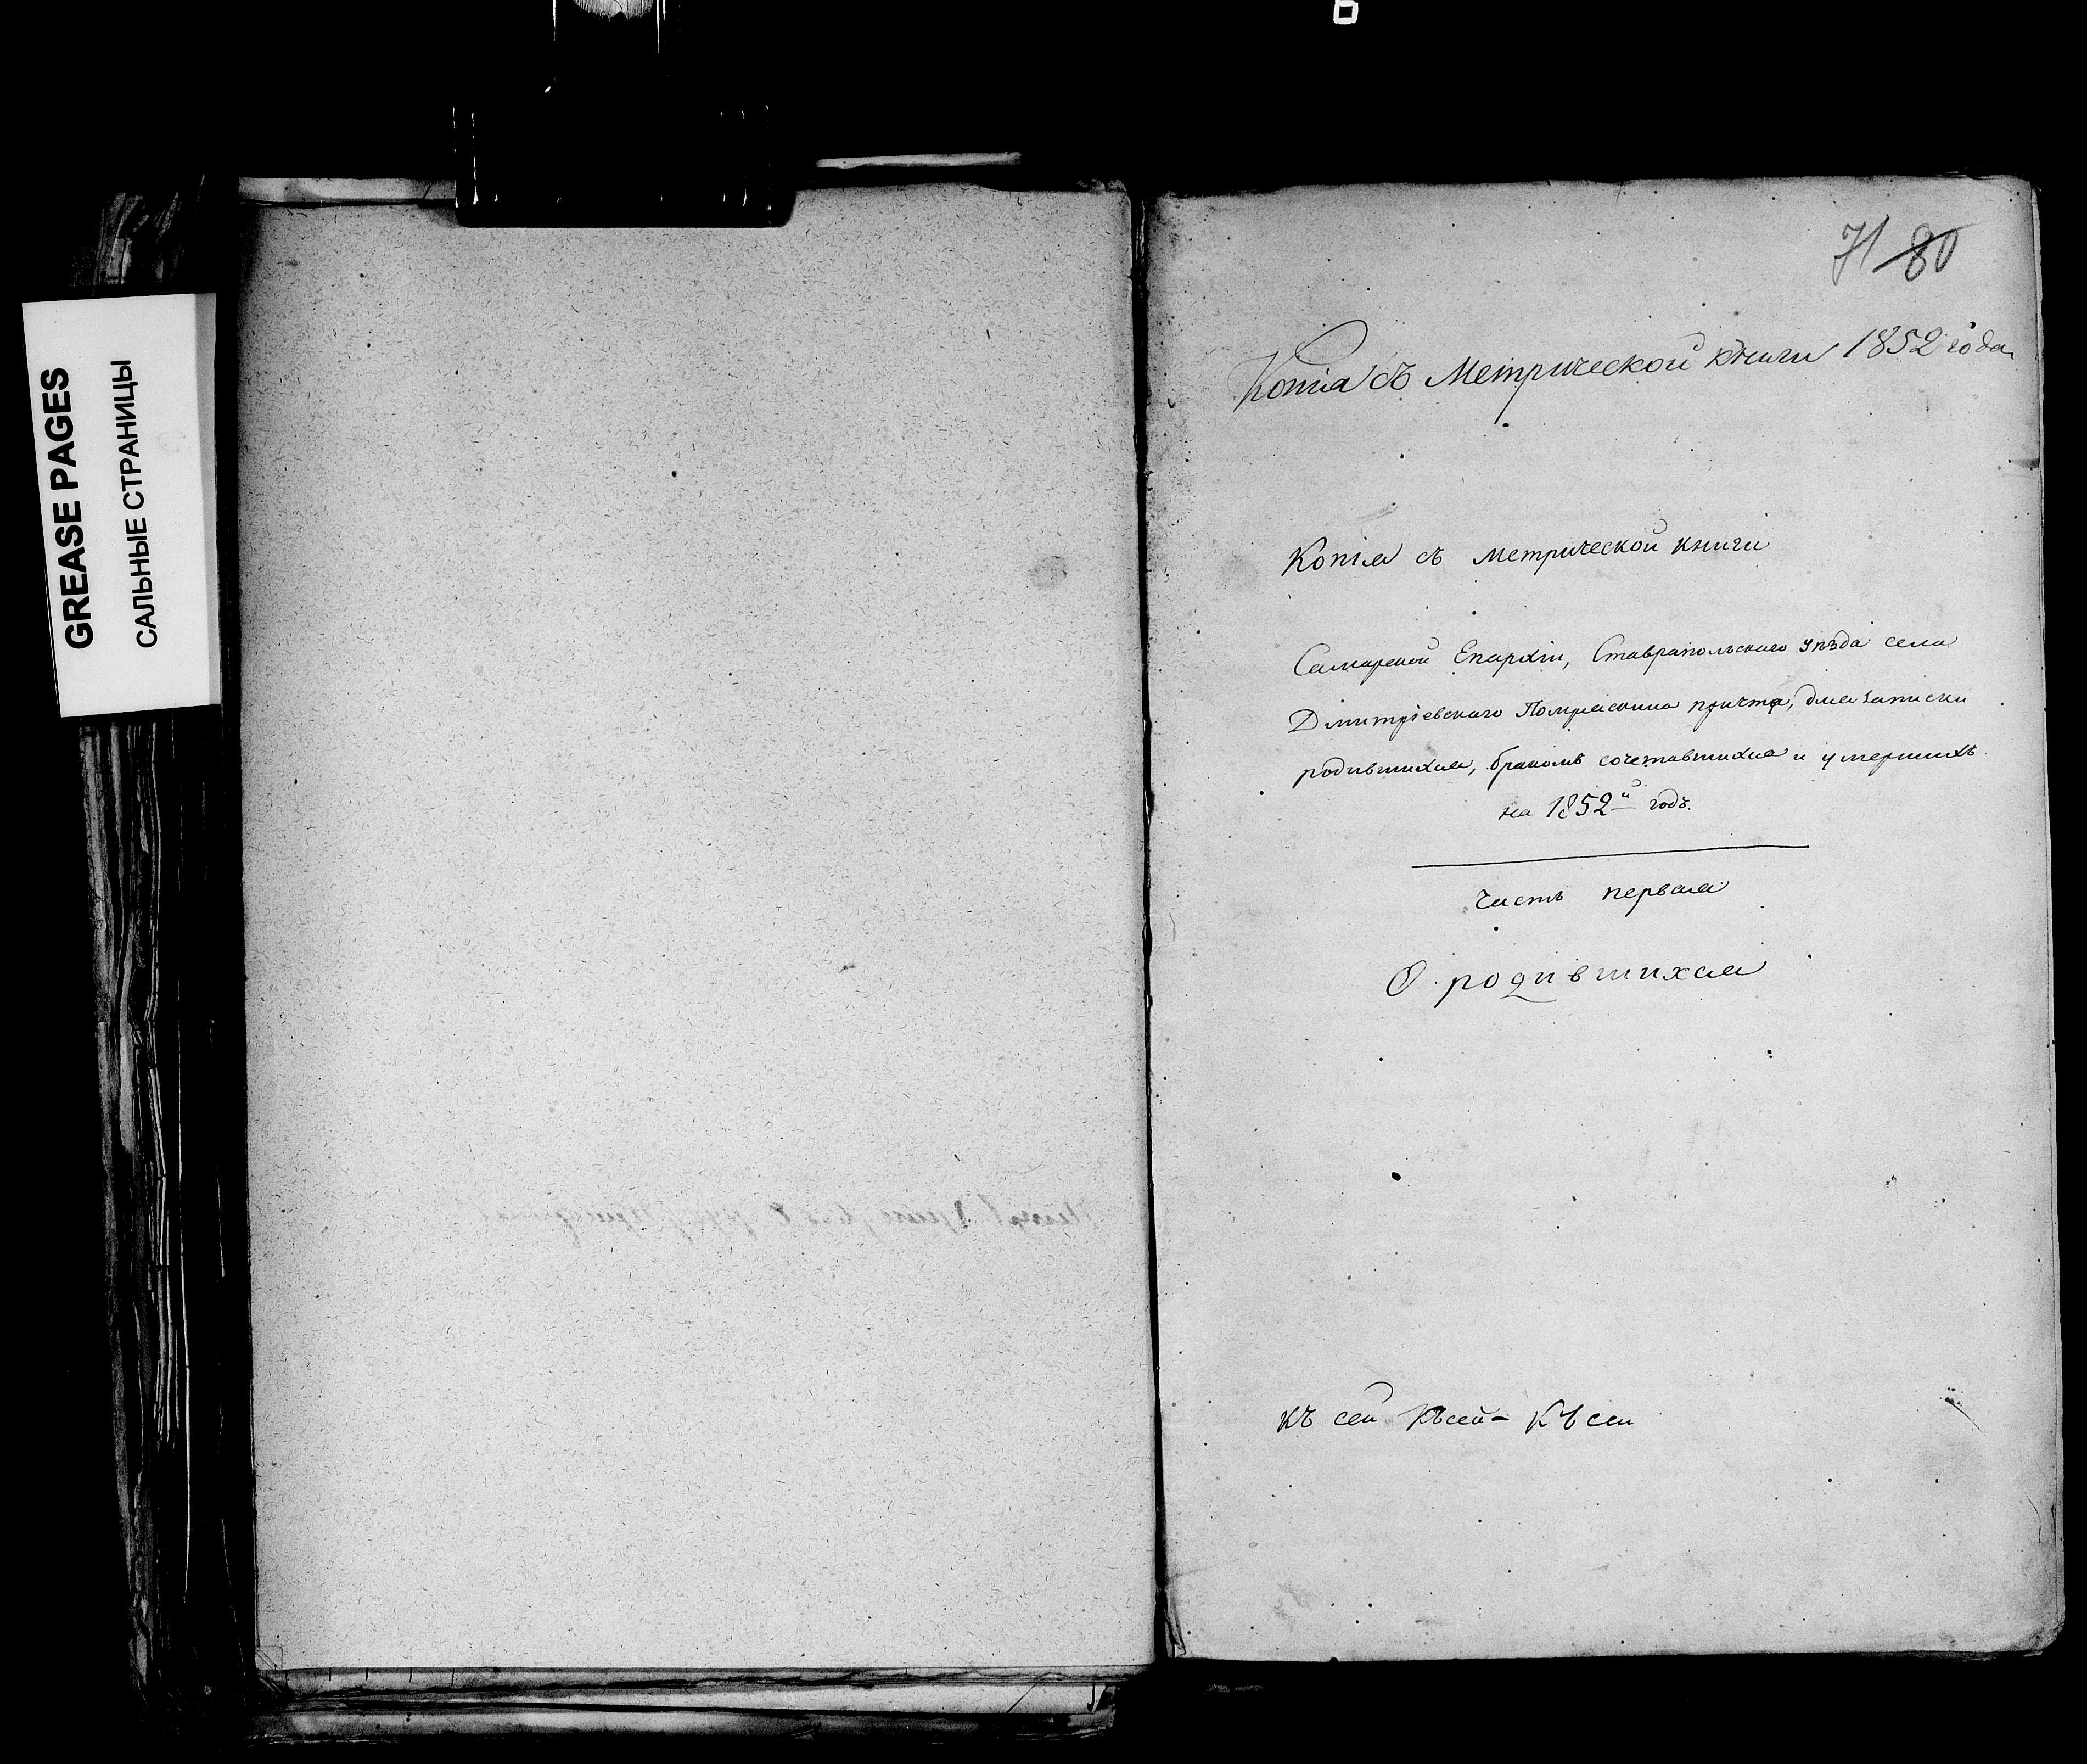 GREASE PAGES
САЛЬНЫЕ СТРАНИЦЫ
71 80
Копія съ Метрической книги 1852 года
Копія съ метрической книги
Самарской Епархіи, Ставропольскаго уѣзда села
Димитріевскаго Помряскина причта, для записки
родившихся, бракомъ сочетавшихся и умершихъ
на 1852й годъ.
Часть первая
О родившихся
къ сей Къ сей - Къ сей